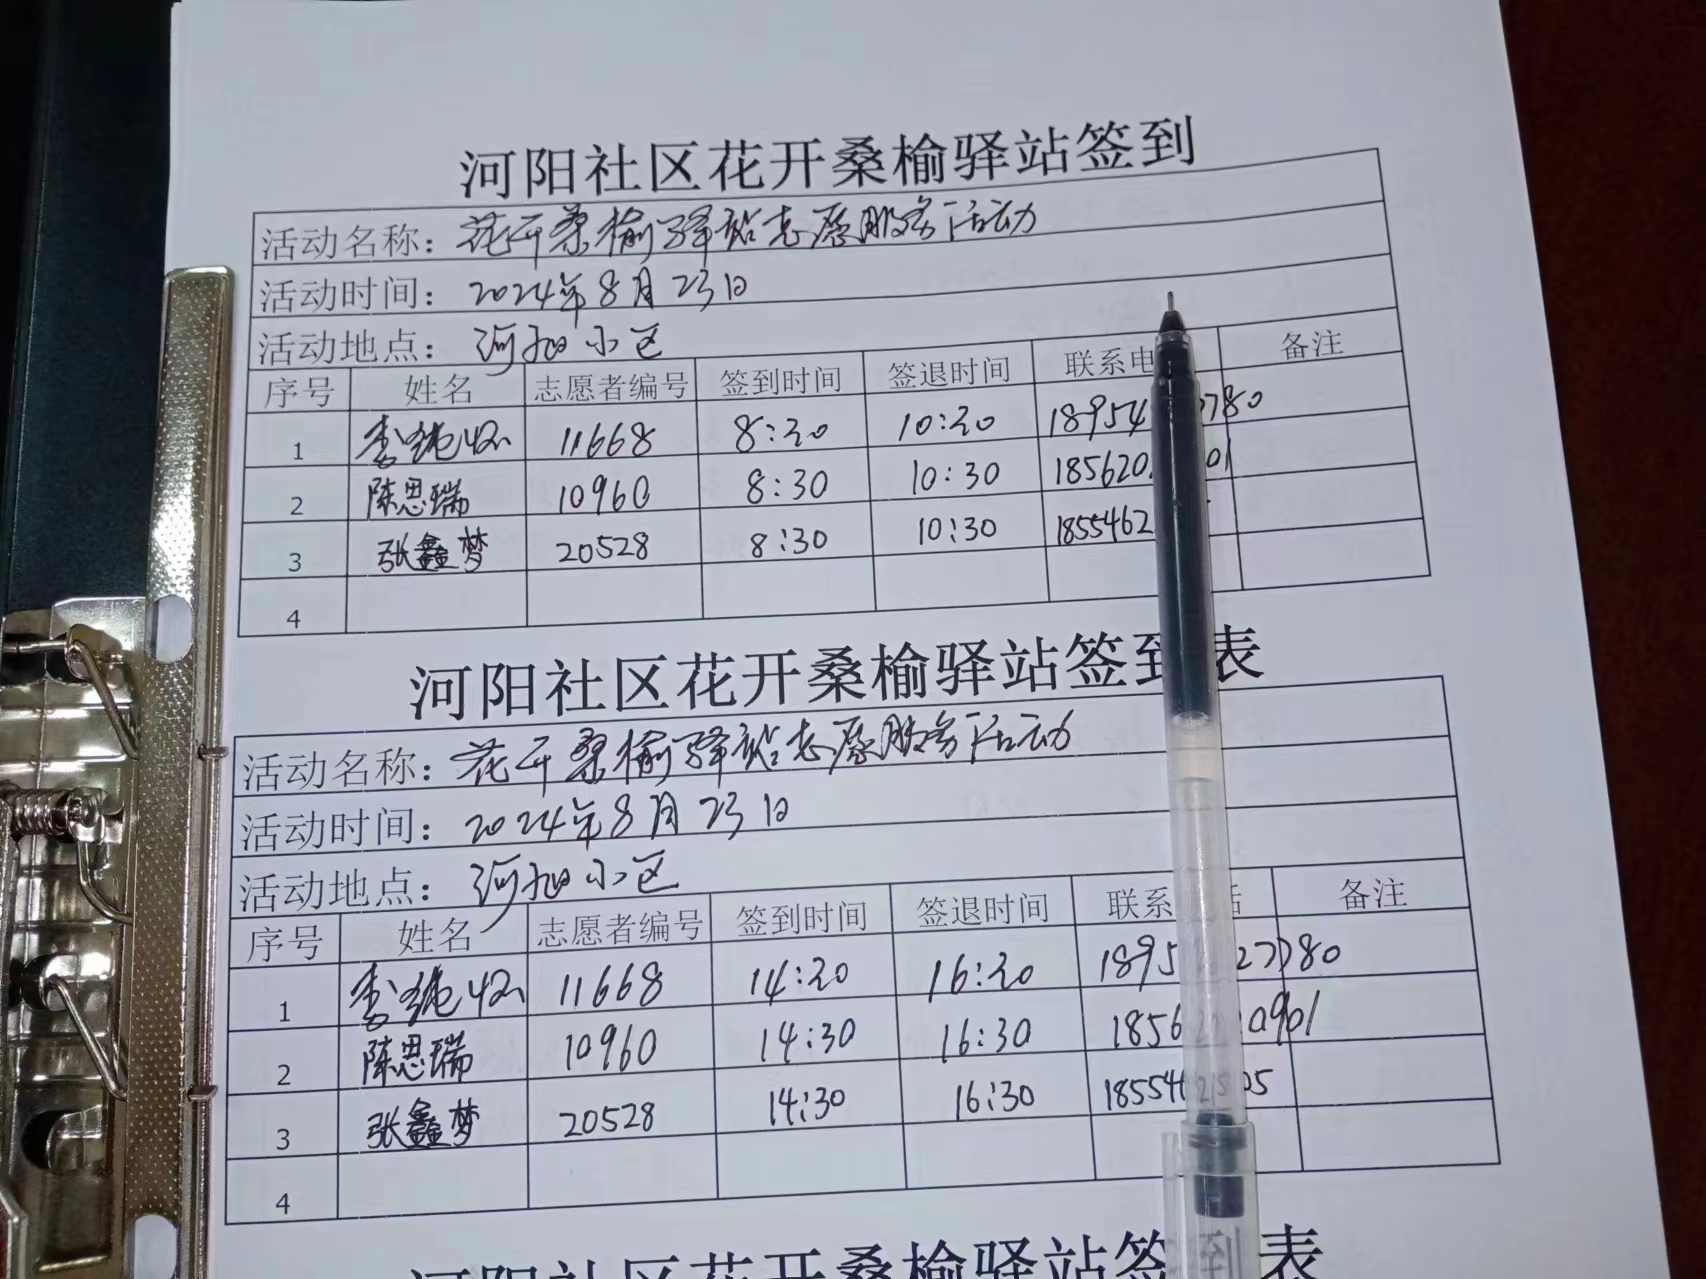 河阳社区花开桑榆驿站签到
活动名称：花开桑榆驿站志愿服务活动
活动时间：2024年8月23日
活动地点：河阳小区
序号 姓名 志愿者编号 签到时间 签退时间 联系电 备注
1 李 11668 8:20 10:20 18954 780
2 陈思瑞 10960 8:30 10:30 185620 01
3 张鑫梦 20528 8:30 10:30 1855462
4
河阳社区花开桑榆驿站签到表
活动名称：花开桑榆驿站志愿服务活动
活动时间：2024年8月23日
活动地点：河阳小区
序号 姓名 志愿者编号 签到时间 签退时间 联系 话 备注
1 李 11668 14:20 16:20 1895 27780
2 陈思瑞 10960 14:30 16:30 1856 0901
3 张鑫梦 20528 14:30 16:30 18554 05
4
河阳社区花开桑榆驿站签 表